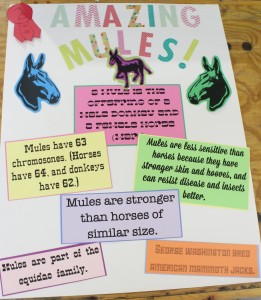 AMAZING
MULES!
A MULE IS THE
OFFSPRING OF A
MALE DONKEY AND
A FEMALE HORSE
Mules have 63
chromosones. (Horses
have 64, and donkeys
have 62.)
Mules are less sensitive than
horses because they have
stronger skin and hooves, and
can resist disease and insects
better.
Mules are stronger
than horses of
similar size.
Mules are part of the
equidae family.
George Washington bred
american mammoth jacks.